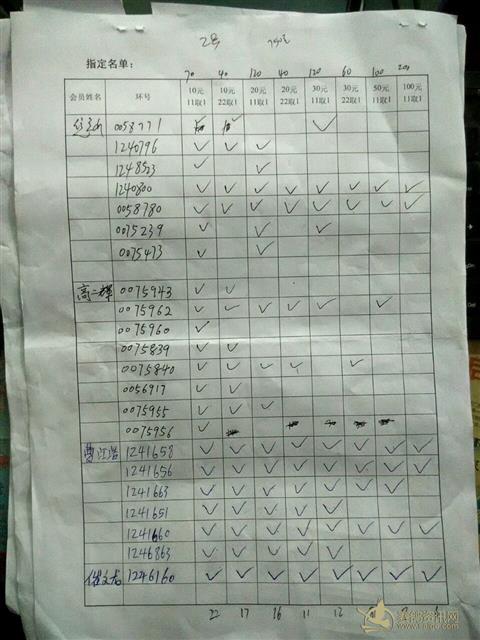 2号
指定名单:
70 40 120 40 120 60 100 200
会员姓名 环号 10元 10元 20元 20元 30元 30元 50元 100元
11取1 22取1 11取1 22取1 11取1 22取1 11取1 11取1
0058771 ✓ ✓ ✓
1240796 ✓ ✓ ✓
1248523 ✓ ✓
1240800 ✓ ✓ ✓ ✓ ✓ ✓ ✓ ✓
0058780 ✓ ✓ ✓ ✓ ✓ ✓ ✓ ✓
0075239 ✓ ✓ ✓
0075473 ✓ ✓
高二辉 0075943 ✓ ✓
0075962 ✓ ✓ ✓ ✓ ✓ ✓
0075960 ✓
0075839 ✓ ✓
0075840 ✓ ✓ ✓ ✓ ✓
0056917 ✓ ✓
0075955 ✓ ✓ ✓
0075956 ✓
1241658 ✓ ✓ ✓ ✓ ✓ ✓ ✓ ✓
1241656 ✓ ✓ ✓ ✓ ✓ ✓ ✓ ✓
1241663 ✓ ✓ ✓ ✓ ✓ ✓ ✓
1241651 ✓ ✓ ✓ ✓ ✓
1241660 ✓ ✓ ✓ ✓ ✓ ✓ ✓ ✓
1246863 ✓ ✓ ✓ ✓ ✓
1246160 ✓ ✓ ✓ ✓ ✓ ✓ ✓ ✓
22 17 16 11 12